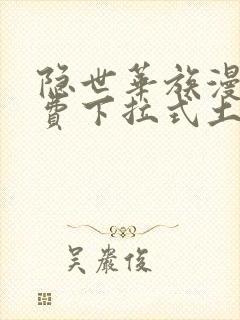 隐世华族漫
费下拉式土
吴严俊